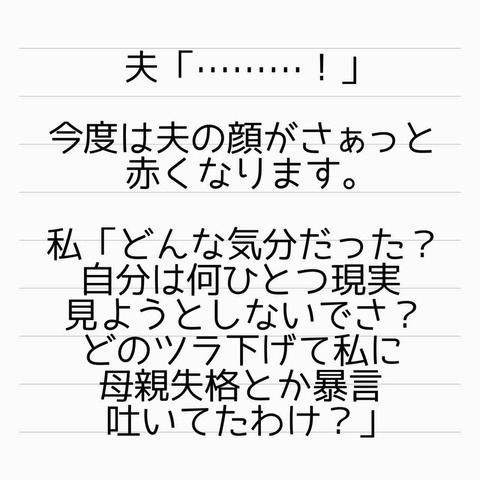 夫「………！」
今度は夫の顔がさぁっと
赤くなります。
私「どんな気分だった？
自分は何ひとつ現実
見ようとしないでさ？
どのツラ下げて私に
母親失格とか暴言
吐いてたわけ？」